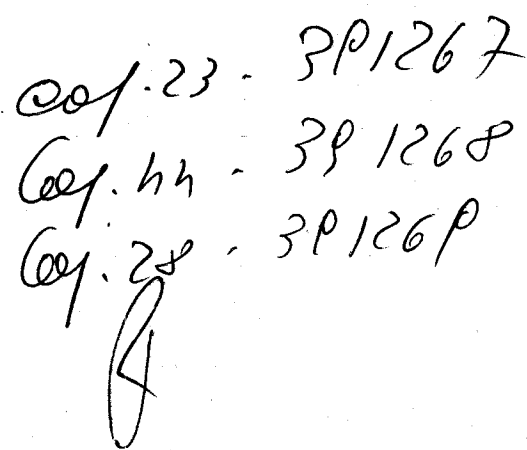 Caj. 23 - 391267
Caj. 44 - 391268
Caj. 28 - 391269